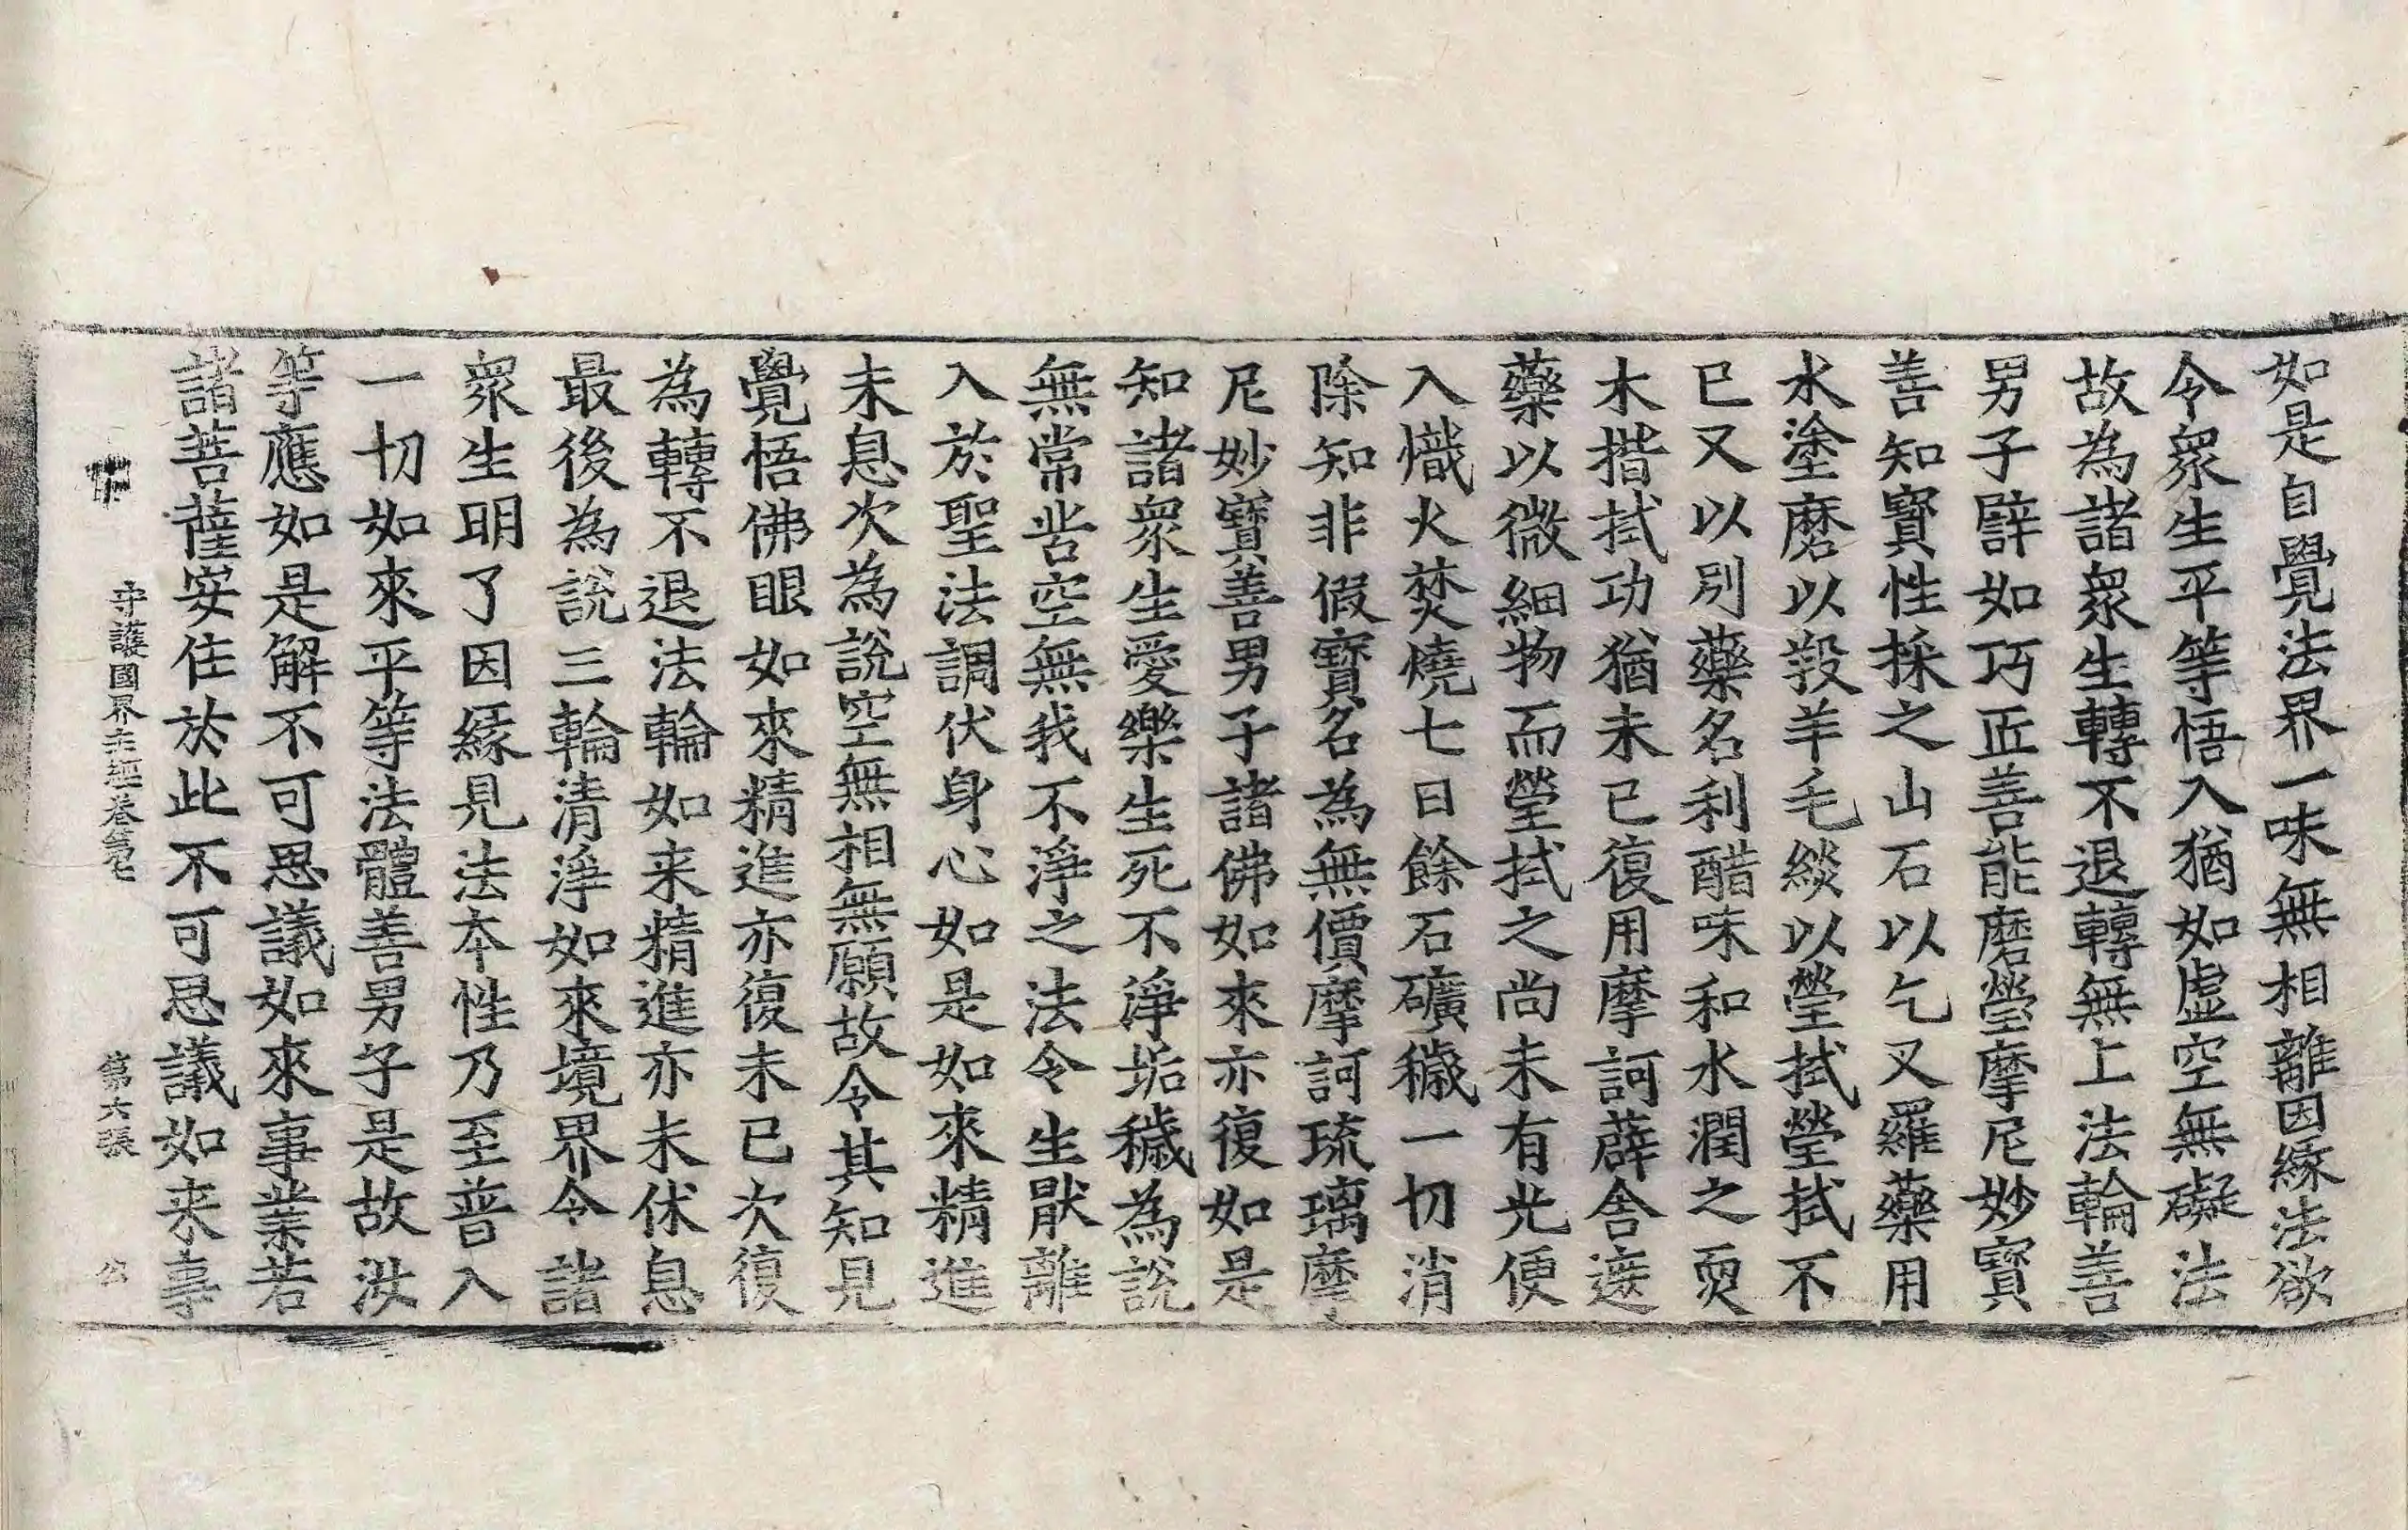 如是自覺法界一味無相離因緣法欲
令衆生平等悟入猶如虛空無礙法
故為諸衆生轉不退轉無上法輪善
男子譬如巧匠善能磨瑩摩尼妙寳
善知寳性採之山石以乞叉羅藥用
水塗磨以羖羊毛緂以瑩拭瑩拭不
已又以別藥名利醋味和水潤之耎
木揩拭功猶未已復用摩訶薜舍遮
藥以微細物而瑩拭之尚未有光便
入熾火焚燒七日餘石礦穢一切消
除知非假寳名為無價摩訶琉璃摩
尼妙寳善男子諸佛如來亦復如是
知諸衆生愛樂生死不淨垢穢為說
無常苦空無我不淨之法令生猒離
入於聖法調伏身心如是如來精進
未息次為說空無相無願故令其知見
覺悟佛眼如來精進亦復未已次復
為轉不退法輪如来精進亦未休息
最後為說三輪清淨如來境界令諸
衆生明了因緣見法本性乃至普入
一切如來平等法體善男子是故汝
等應如是解不可思議如來事業若
諸菩薩安住於此不可思議如来事
守護國界主經卷第七 第六張